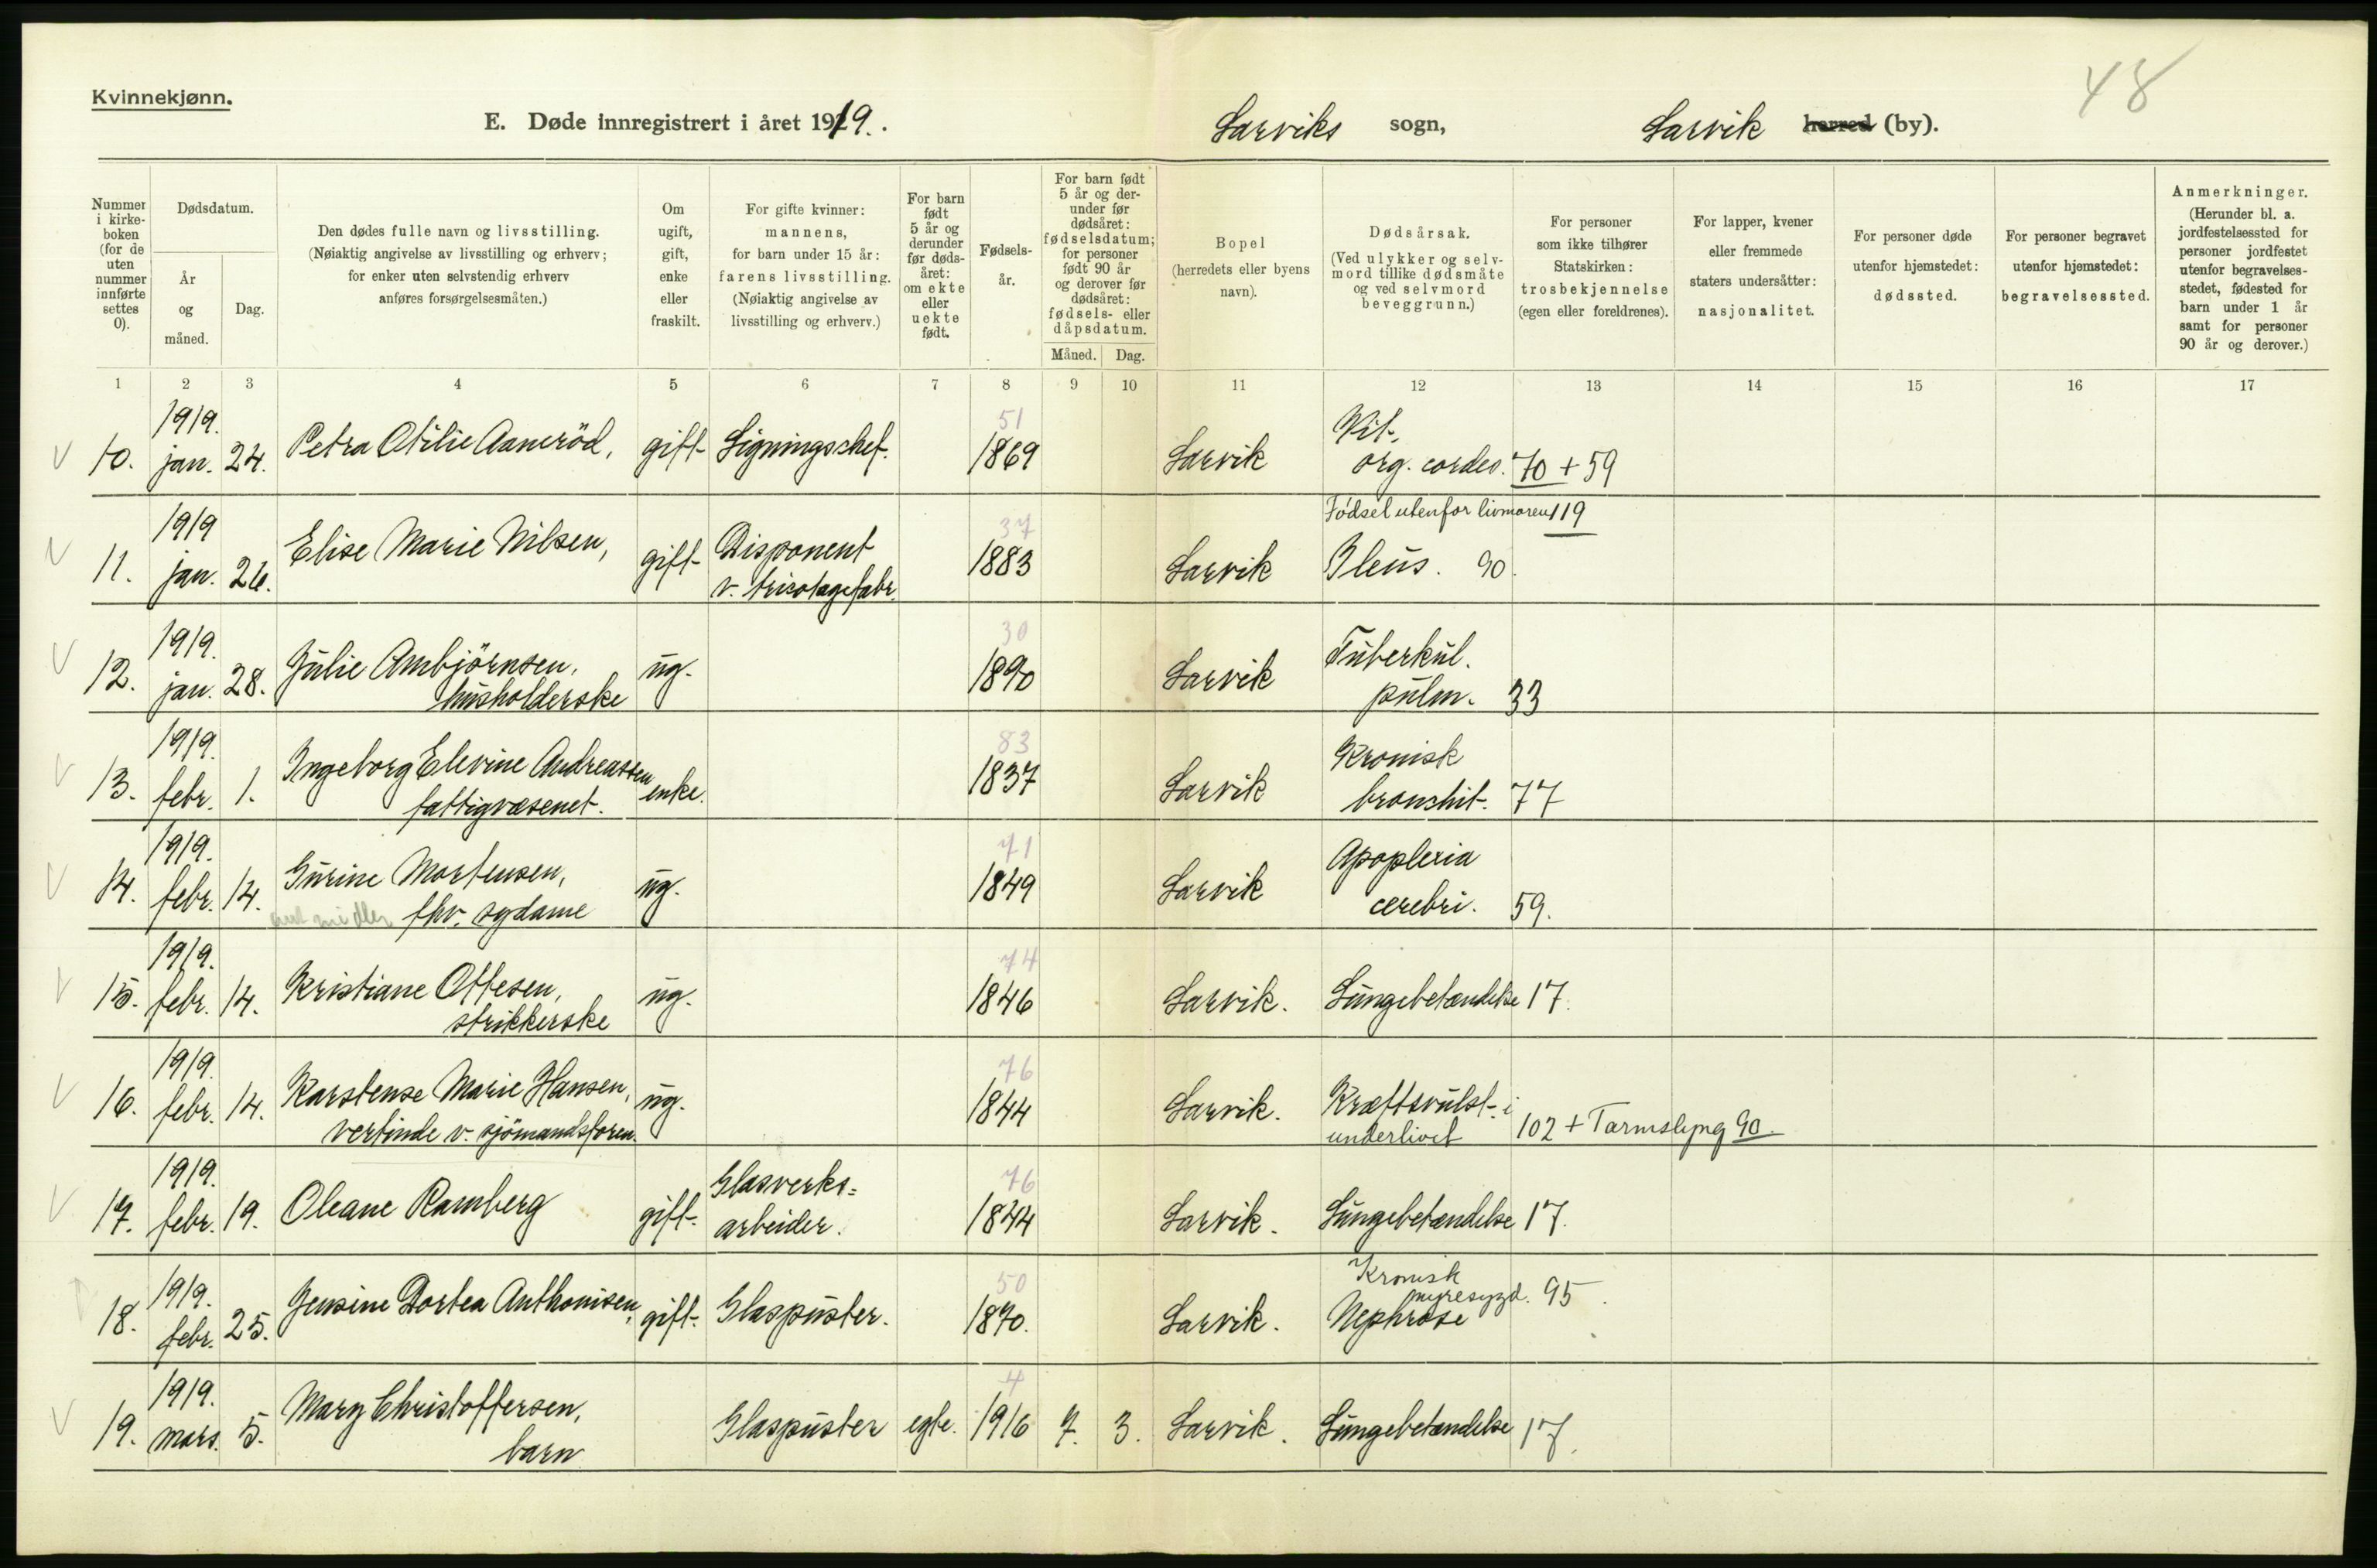 Kvinnekjønn.
48
E. Døde innregistrert i året 1919.
Larviks sogn, Larvik herred (by).
Nummer i kirkeboken (for de uten nummer innførte settes 0).
Dødsdatum.
År og måned.
Dag.
Den dødes fulle navn og livsstilling.
(Nøiaktig angivelse av livsstilling og erhverv;
for enker uten selvstendig erhverv
anføres forsørgelsesmåten.)
Om ugift, gift, enke eller fraskilt.
For gifte kvinner:
mannens,
for barn under 15 år:
farens livsstilling.
(Nøiaktig angivelse av
livsstilling og erhverv.)
For barn født 5 år og derunder før dødsåret: om ekte eller uekte født.
Fødselsår.
For barn født 5 år og derunder før dødsåret: fødselsdatum; for personer født 90 år og derover før dødsåret: fødsels- eller dåpsdatum.
Måned.
Dag.
Bopel
(herredets eller byens
navn).
Dødsårsak.
(Ved ulykker og selvmord tillike dødsmåte og ved selvmord beveggrunn.)
For personer
som ikke tilhører
Statskirken:
trosbekjennelse
(egen eller foreldrenes).
For lapper, kvener
eller fremmede
staters undersåtter:
nasjonalitet.
For personer døde
utenfor hjemstedet:
dødssted.
For personer begravet
utenfor hjemstedet:
begravelsessted.
Anmerkninger.
(Herunder bl. a.
jordfestelsessted for
personer jordfestet
utenfor begravelses-
stedet, fødested for
barn under 1 år
samt for personer
90 år og derover.)
1 2 3 4 5 6 7 8 9 10 11 12 13 14 15 16 17
1919. 51 Vit.
10. jan. 24. Petra Otilie Aameröd, gift Ligningschef. 1869 Larvik org. cordes. 70 + 59
1919 37 Födsel utenfor livmoren 119
11. jan. 26. Elise Marie Nilsen, gift Disponent 1883 Larvik Ileus. 90.
v. tricotagefabr.
1919. 30 Tuberkul.
12. jan. 28. Julie Ambjörnsen, ug. 1890 Larvik pulm. 33
husholderske
1919. 83 Kronisk
13. febr. 1. Ingeborg Elevine Andreassen enke. 1837 Larvik bronchit. 77
fattigvæsenet.
1919. 71 Apoplexia
14. febr. 14. Gurine Mortensen, ug. 1849 Larvik cerebri. 59.
midler fhv. sydame
1919. 74
15. febr. 14. Kristiane Ottesen, ug. 1846 Larvik. Lungebetændelse 17.
strikkerske
1919. 76
16. febr. 14. Karstense Marie Hansen, ug. 1844 Larvik. Kræftsvulst i
vertinde v. sjömandsforen. underlivet 102 + Tarmslyng 90.
1919. Glasverks= 76
17. febr. 19. Oleane Ramberg gift. arbeider. 1844 Larvik. Lungebetændelse 17.
1919. 50 Kronisk nyresygd. 95.
18. febr. 25. Jensine Dortea Anthonisen, gift. Glaspuster. 1870. Larvik. Nephrose
1919. 4
19. mars. 5. Mary Christoffersen, Glaspuster egte. 1916 7. 3. Larvik. Lungebetændelse 17.
barn